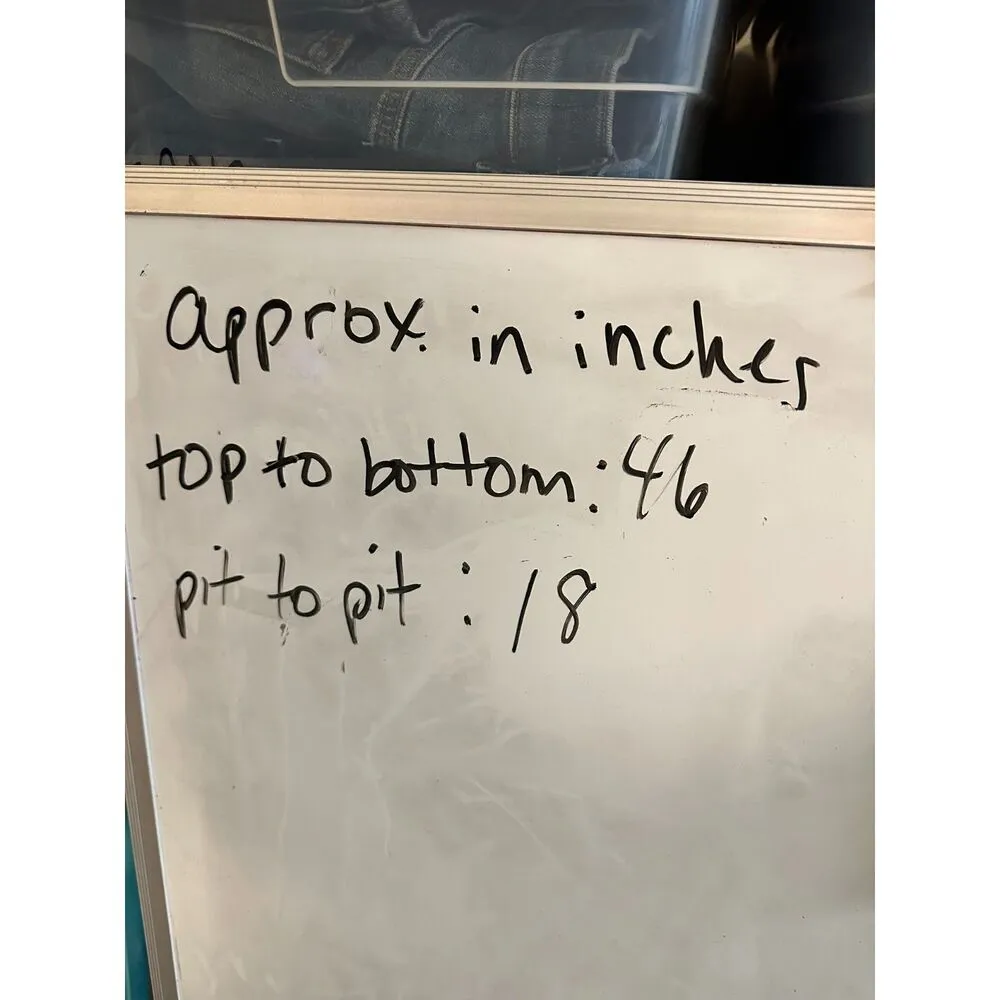 approx. in inches
top to bottom: 46
pit to pit: 18